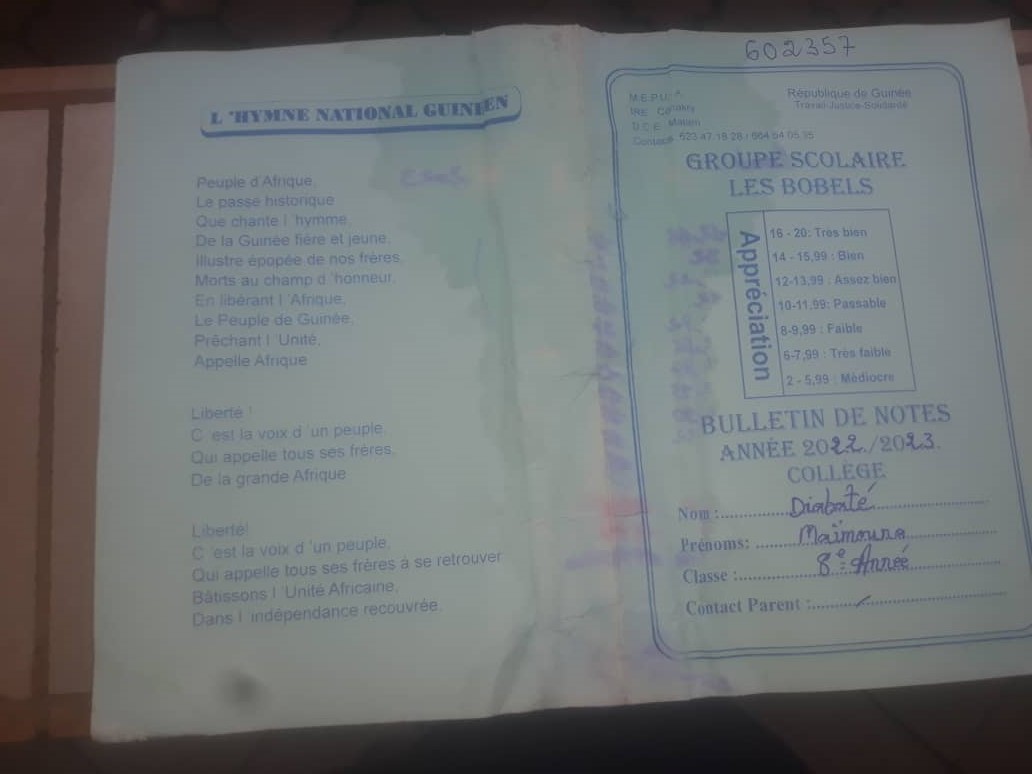 L 'HYMNE NATIONAL GUINÉEN
Peuple d Afrique,
Le passé historique
Que chante l 'hymme,
De la Guinée fière et jeune,
Illustre épopée de nos frères,
Morts au champ d 'honneur,
En libérant l 'Afrique,
Le Peuple de Guinée,
Prêchant l 'Unité,
Appelle Afrique
Liberté !
C 'est la voix d 'un peuple,
Qui appelle tous ses frères,
De la grande Afrique
Liberté!
C 'est la voix d 'un peuple,
Qui appelle tous ses frères à se retrouver
Bâtissons l 'Unité Africaine,
Dans l 'indépendance recouvrée.
602357
M.E.P.U. A
IRE Conakry
D C E Matam
Contact 623 47 18 28 / 664 54 05 35
République de Guinée
Travail-Justice-Solidarité
GROUPE SCOLAIRE
LES BOBELS
Appréciation
16 - 20: Très bien
14 - 15,99 : Bien
12-13,99 : Assez bien
10-11,99: Passable
8-9,99 : Faible
6-7,99 : Très faible
2 - 5,99 : Médiocre
BULLETIN DE NOTES
ANNÉE 2022/2023
COLLÈGE
Nom : Diabaté
Prénoms: Maïmouna
Classe : 8e Année
Contact Parent : /